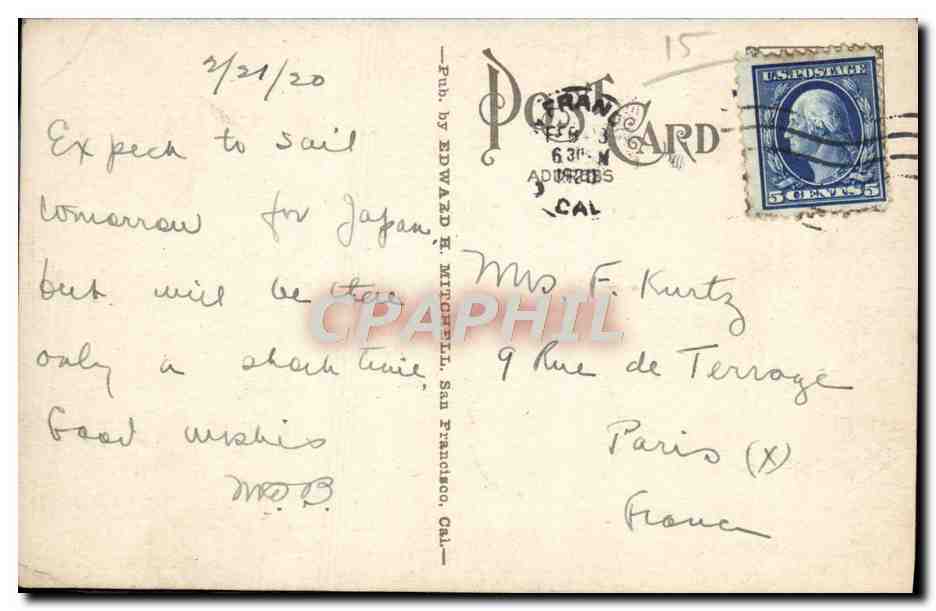 2/21/20
Expect to sail
tomorrow for Japan,
but will be there
only a short time.
Good wishes
—Pub. by EDWARD H. MITCHELL, San Francisco, Cal.—
15
POST CARD
ADDRESS
FRANC
6 30
1920
CAL
U.S. POSTAGE
5 CENTS 5
Mrs F. Kurtz
9 Rue de Terrage
Paris (X)
France
CPAPHIL